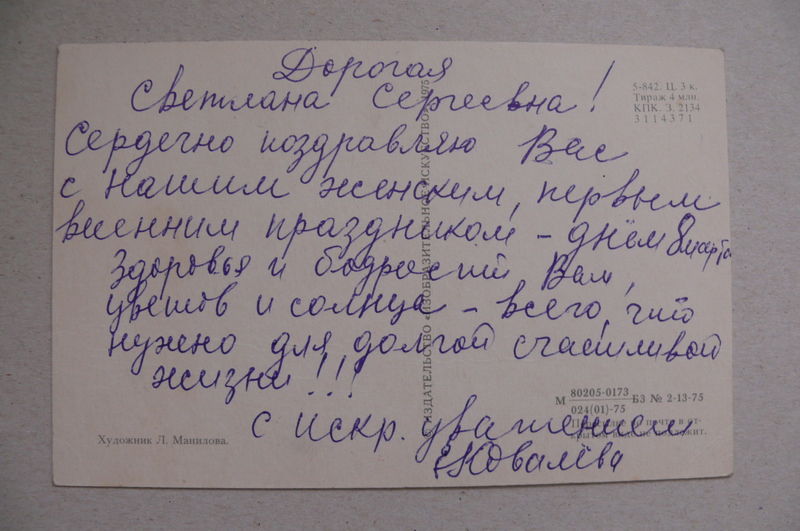 Дорогая
Светлана Сергеевна!
Сердечно поздравляю Вас
с нашим женским, первым
весенним праздником - днём 8 марта
Здоровья и бодрости Вам,
цветов и солнца - всего, что
нужно для долгой счастливой
жизни!!!
С искр. уважением
Е Ковалёва
5-842. Ц. 3 к.
Тираж 4 млн.
КПК. З. 2134
3114371
ИЗДАТЕЛЬСТВО «ИЗОБРАЗИТЕЛЬНОЕ ИСКУССТВО» 1975
М 80205-0173 БЗ № 2-13-75
024(01)-75
почте в от-
не подлежит.
Художник Л. Манилова.